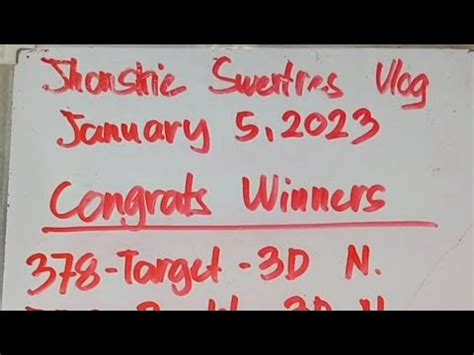 Jhonskie Swertres Vlog
January 5, 2023
Congrats Winners
378-Target-3D N.
3D N.